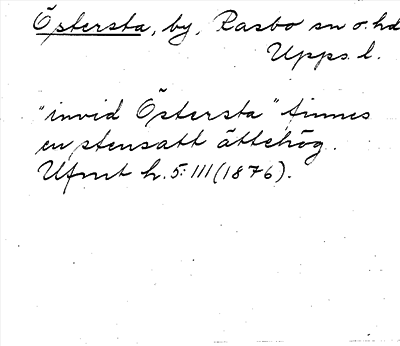 Östersta, by, Rasbo sn o. hd
Upps. l.
"invid Östersta" finnes
en stensatt ättehög.
Ufmt h. 5: III (1876).